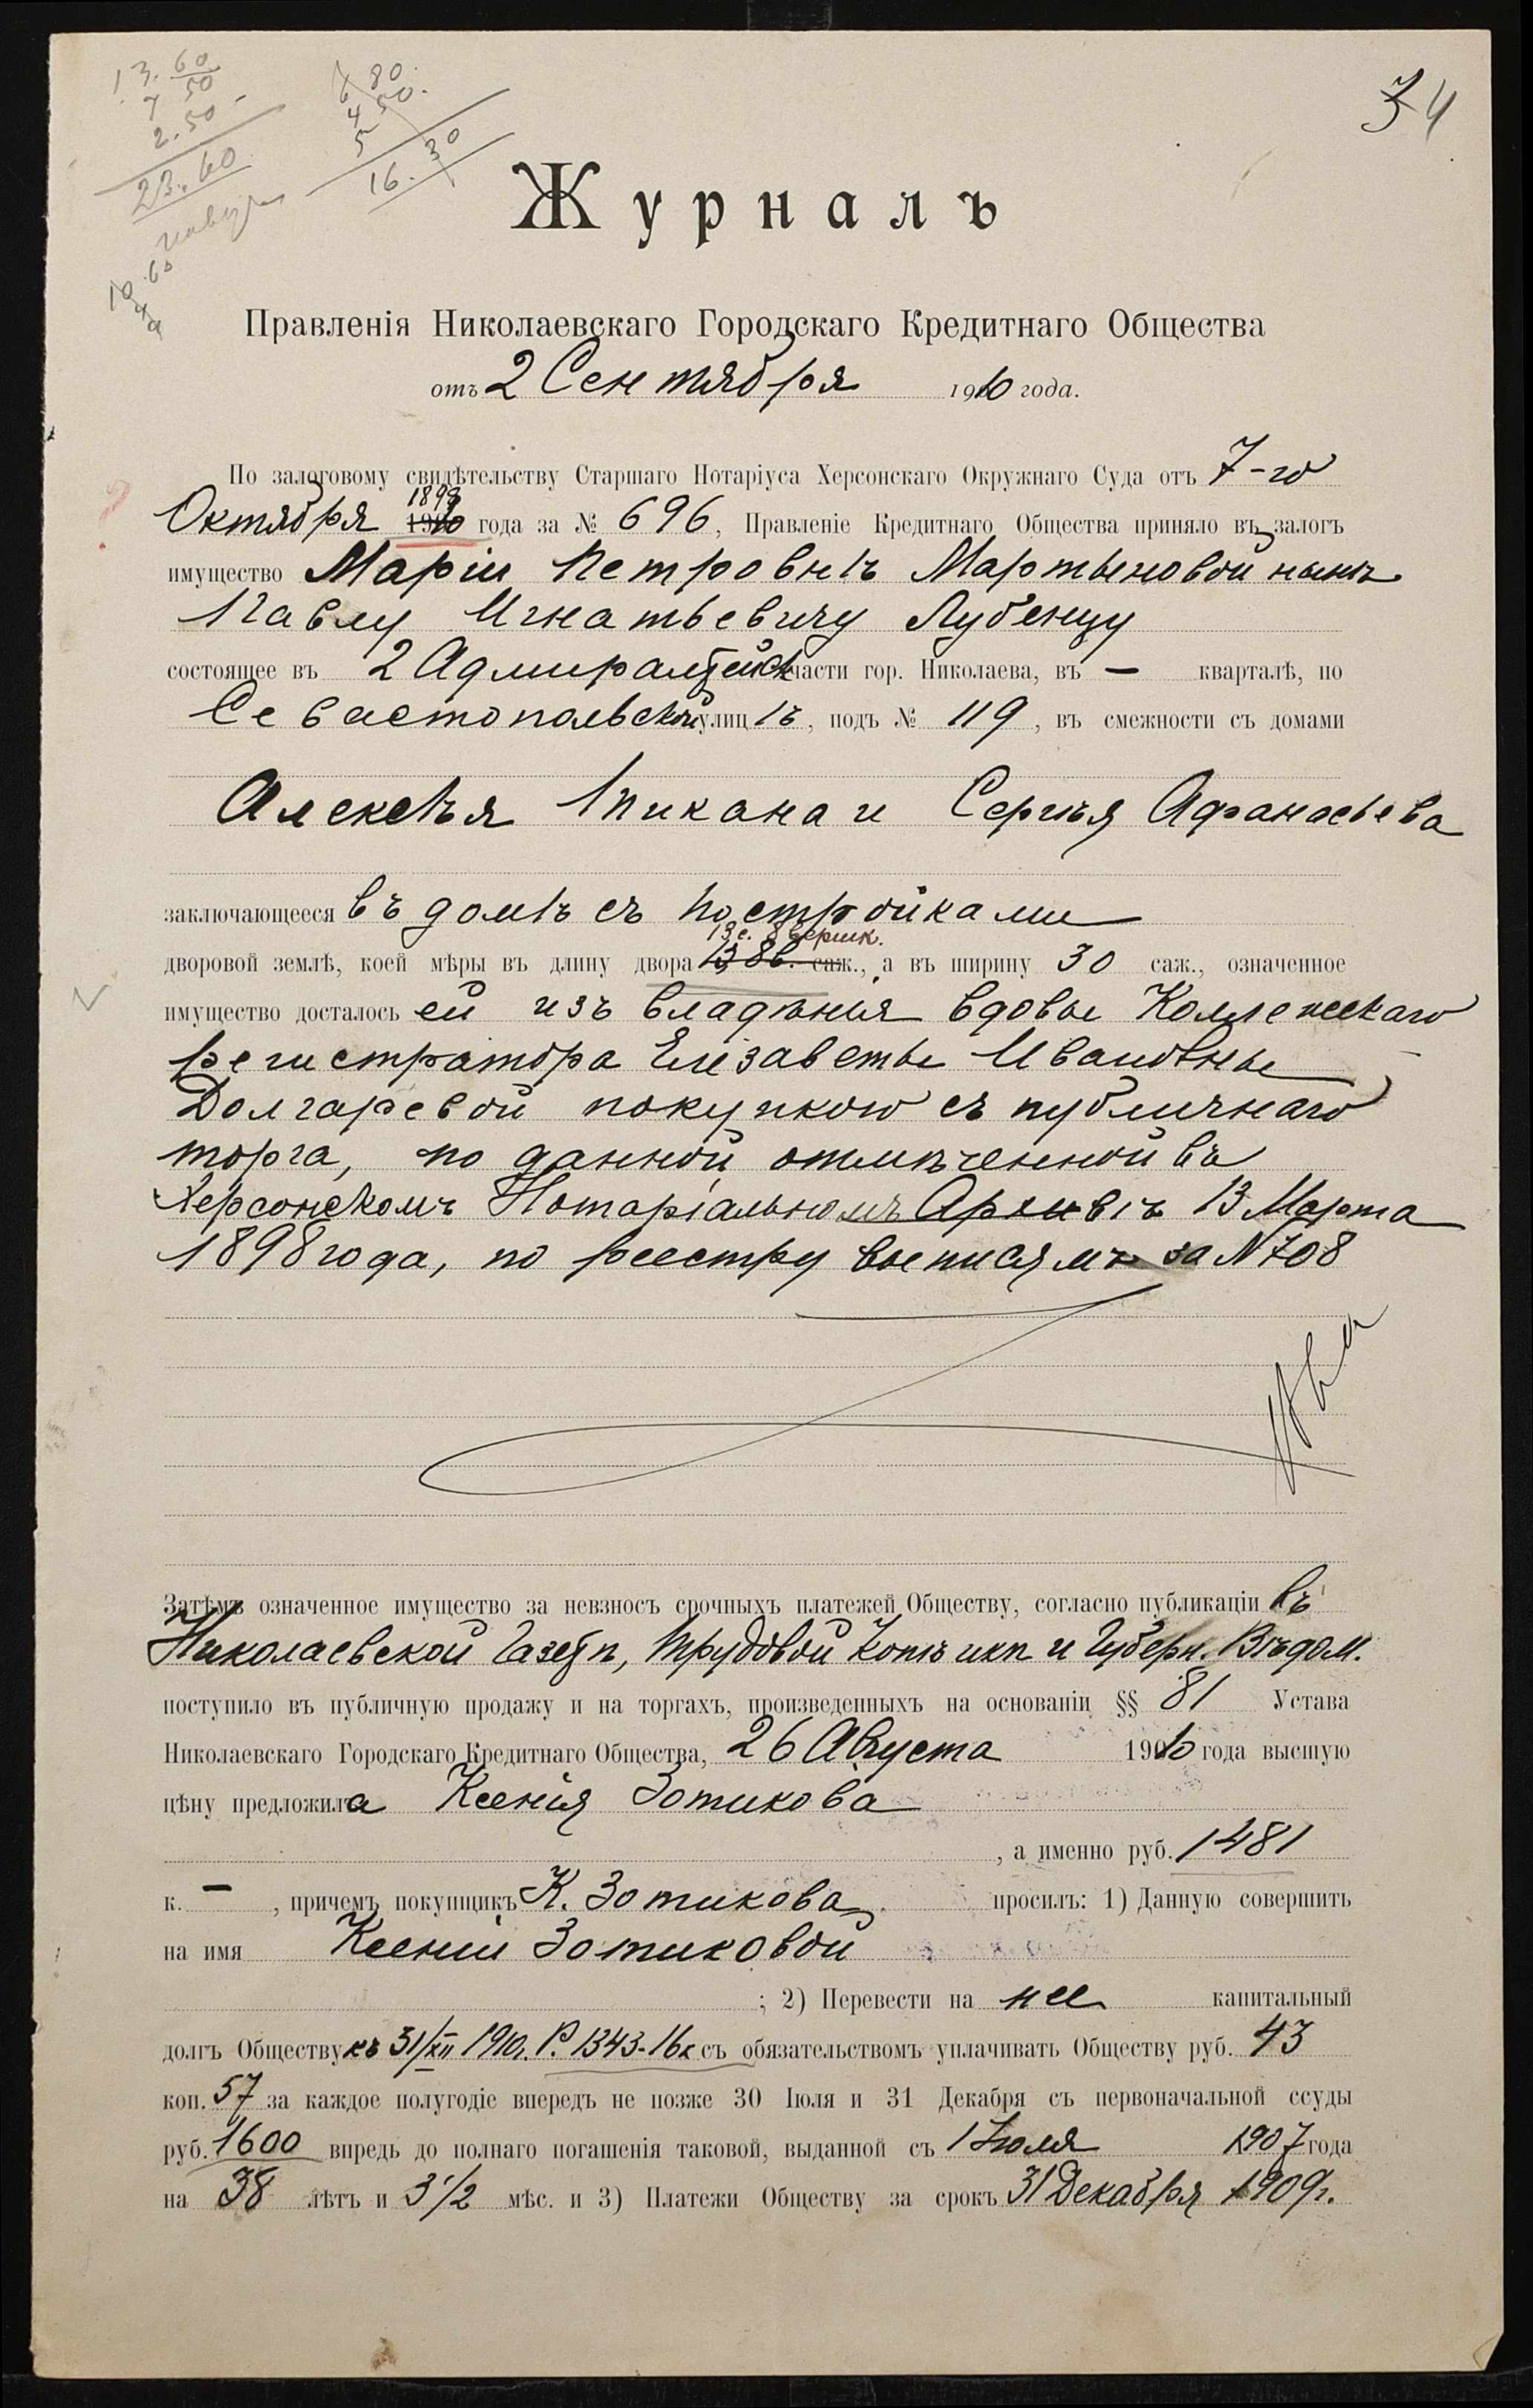 13. 60
7 50
2. 50
23. 60
6 80
4 50.
5
16. 30
34
Журналъ
Правленія Николаевскаго Городскаго Кредитнаго Общества
отъ 2 Сентября 1910 года.
По залоговому свидѣтельству Старшаго Нотаріуса Херсонскаго Окружнаго Суда отъ 7-го
1898
Октября 1910 года за № 696, Правленіе Кредитнаго Общества приняло въ залогъ
имущество Маріи Петровнѣ Мартыновой нынѣ
Павлу Игнатьевичу Лубенцу
состоящее въ 2 Адмиралтейск части гор. Николаева, въ — кварталѣ, по
Севастопольской улицѣ, подъ № 119, въ смежности съ домами
Алексѣя Пикана и Сергѣя Афанасьева
заключающееся въ домѣ съ постройками
13 с. 8 вершк.
дворовой землѣ, коей мѣры въ длину двора 13 8в. саж., а въ ширину 30 саж., означенное
имущество досталось ей изъ владѣнія вдовы Коллежскаго
регистратора Елизаветы Ивановны
Долгаревой покупкою съ публичнаго
торга, по данной, отмѣченной въ
Херсонскомъ Нотаріальномъ Архивѣ 13 Марта
1898 года, по реестру выписямъ за N 708
Затѣмъ означенное имущество за невзносъ срочныхъ платежей Обществу, согласно публикаціи въ
Николаевской Газетѣ, Трудовой Копѣйкѣ и Губерн. Вѣдом.
поступило въ публичную продажу и на торгахъ, произведенныхъ на основаніи §§ 81 Устава
Николаевскаго Городскаго Кредитнаго Общества, 26 Августа 1910 года высшую
цѣну предложила Ксенія Зотикова
, а именно руб. 1481
к. —, причемъ покупщикъ К. Зотикова просилъ: 1) Данную совершить
на имя Ксеніи Зотиковой
; 2) Перевести на нее капитальный
долгъ Обществу къ 31/XII 1910г. Р. 1343-16к съ обязательствомъ уплачивать Обществу руб. 43
коп. 57 за каждое полугодіе впередъ не позже 30 Іюля и 31 Декабря съ первоначальной ссуды
руб. 1600 впредь до полнаго погашенія таковой, выданной съ 1 Іюля 1907 года
на 38 лѣтъ и 3 1/2 мѣс. и 3) Платежи Обществу за срокъ 31 Декабря 1909г.